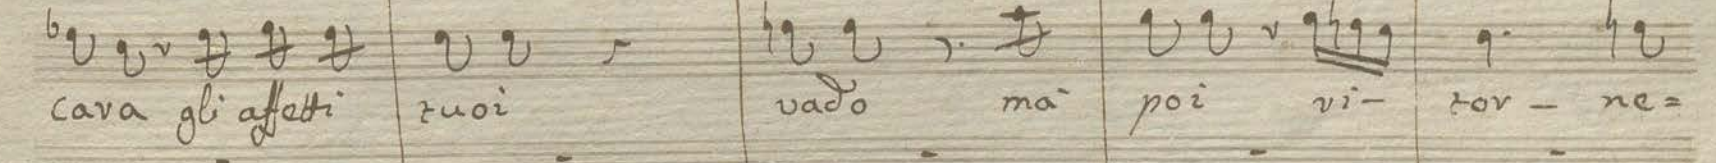 cara gli affetti tuoi vado ma poi ri- tor- ne=